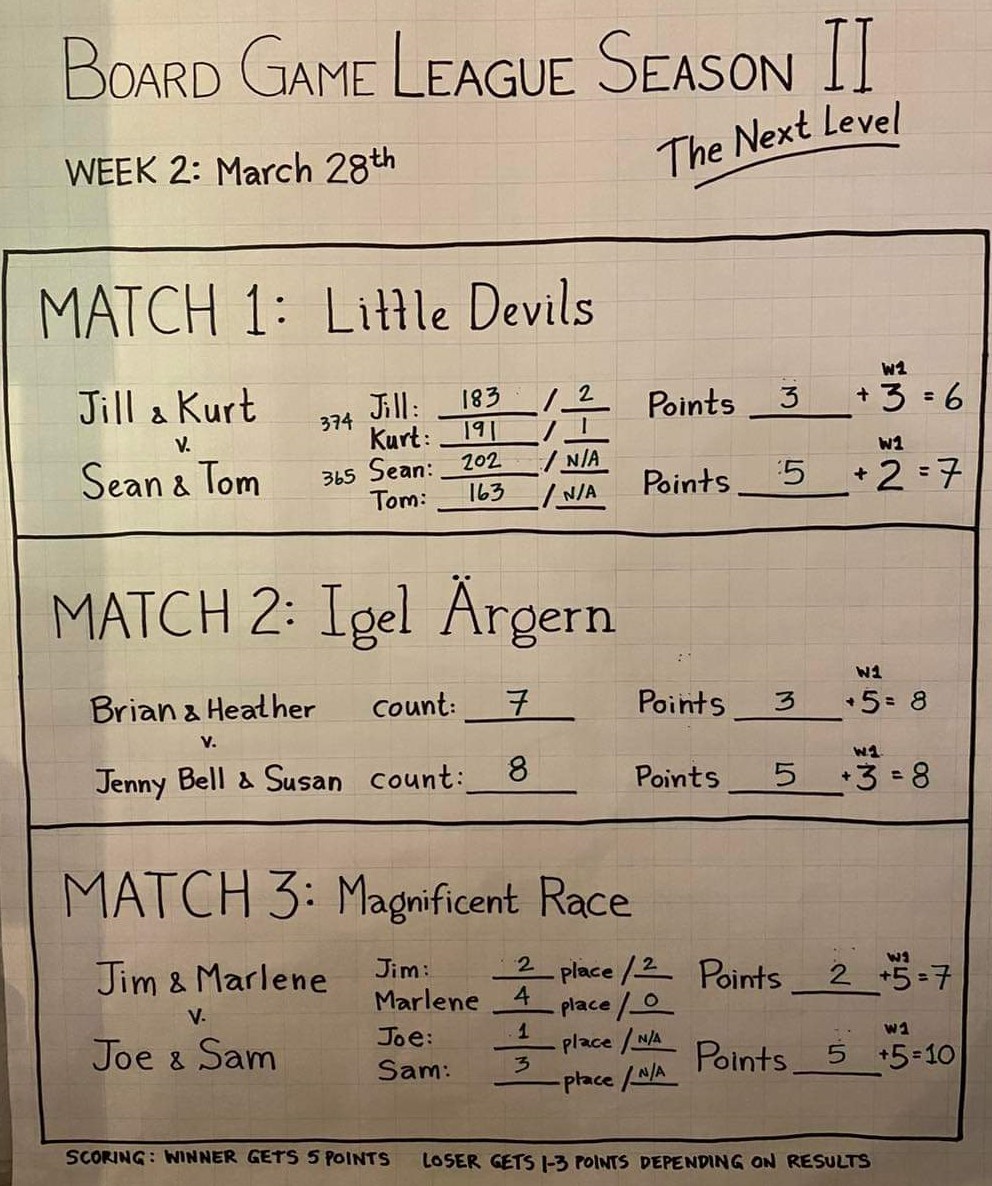 BOARD GAME LEAGUE SEASON II
The Next Level
WEEK 2: March 28th
MATCH 1: Little Devils
Jill & Kurt
v.
Sean & Tom
374 Jill: 183 / 2
Kurt: 191 / 1
365 Sean: 202 / N/A
Tom: 163 / N/A
W1
Points 3 + 3 = 6
W1
Points 5 + 2 = 7
MATCH 2: Igel Ärgern
Brian & Heather count: 7
W1
Points 3 +5 = 8
v.
Jenny Bell & Susan count: 8
W1
Points 5 +3 = 8
MATCH 3: Magnificent Race
Jim & Marlene
v.
Joe & Sam
Jim: 2 place / 2
Marlene 4 place / 0
Joe: 1 place / N/A
Sam: 3 place / N/A
W1
Points 2 +5=7
W1
Points 5 +5=10
SCORING: WINNER GETS 5 POINTS LOSER GETS 1-3 POINTS DEPENDING ON RESULTS